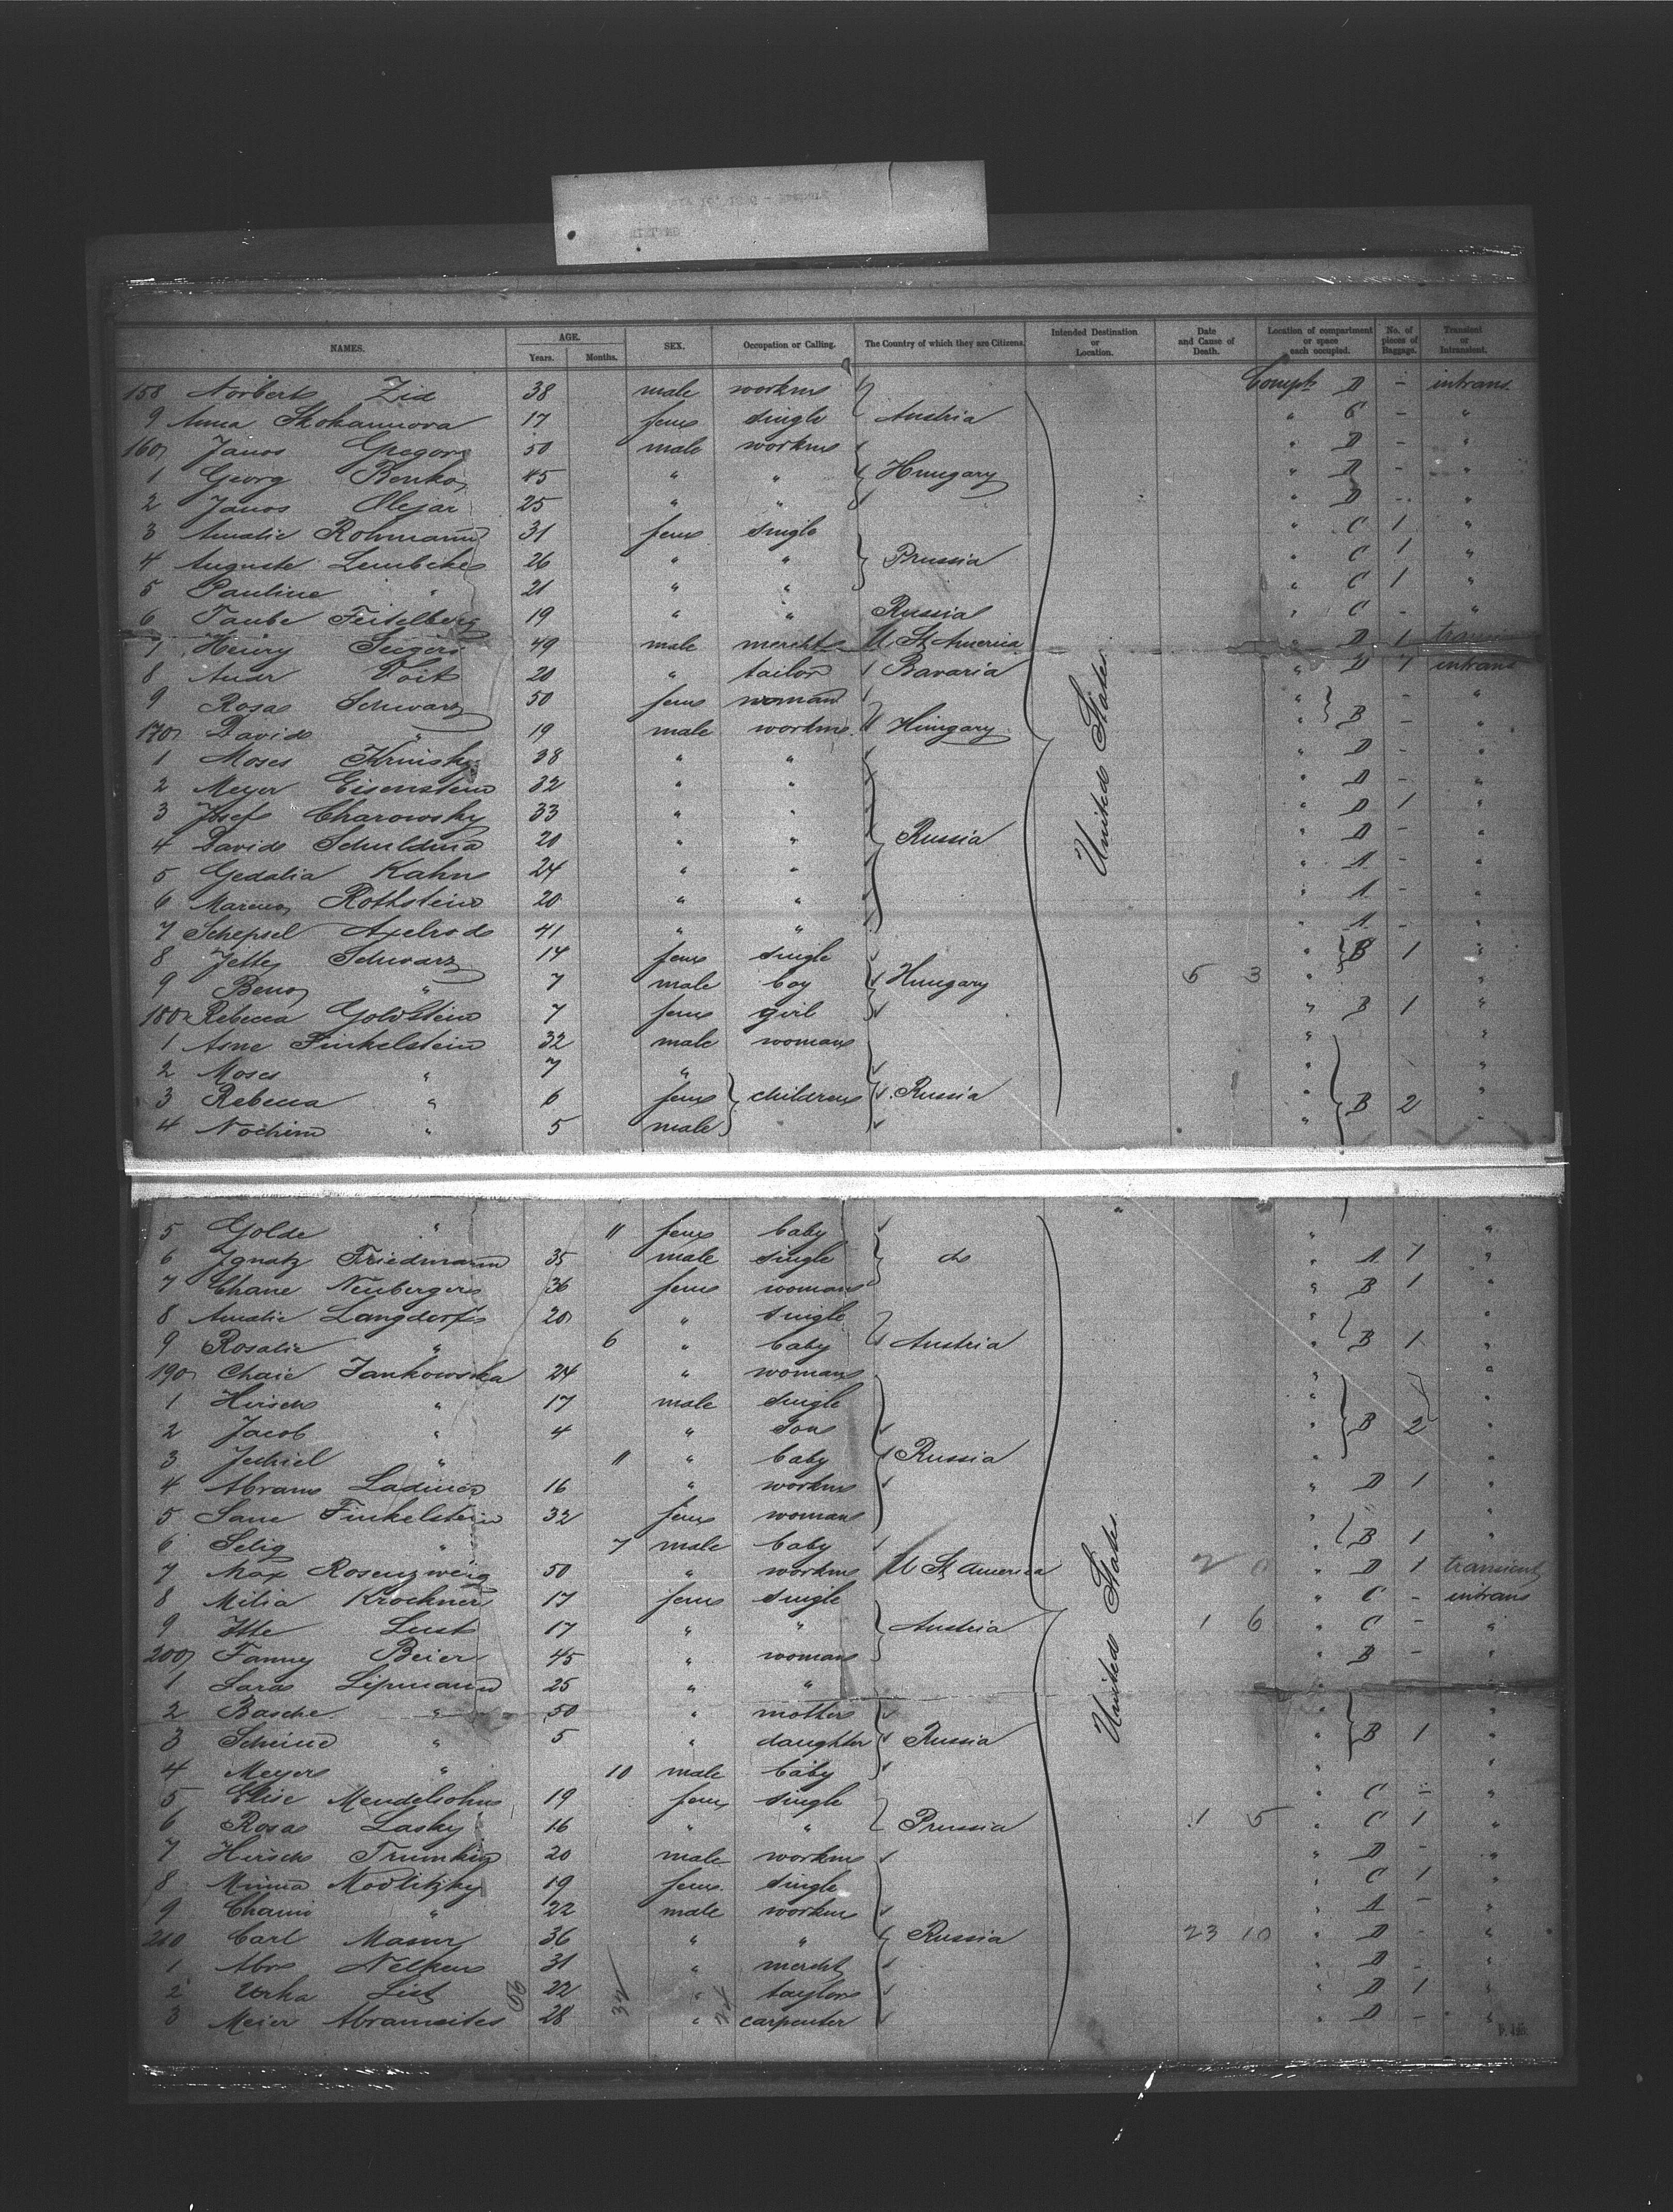 NAMES. AGE. Years. Months. SEX. Occupation or Calling. The Country of which they are Citizens. Intended Destination or Location. Date and Cause of Death. Location of compartment or space each occupied. No. of pieces of Baggage. Transient or Intransient.
158 Norbert Zid 38 male workm Compt D - intrans
9 Anna Skohannova 17 fem single Austria " C - "
160 Janos Gregory 50 male workm " D - "
1 Georg Benko 45 " " Hungary " D - "
2 Janos Olejar 25 " " " D - "
3 Amalie Rohmann 31 fem single " C 1 "
4 Auguste Lembcke 26 " " Prussia " C 1 "
5 Pauline " 21 " " " C 1 "
6 Taube Feitelberg 19 " " Russia " C - "
7 Henry Seegers 49 male mercht U. St. America " D 1 transient
8 Andr Voit 20 " tailor Bavaria " D 1 intrans
9 Rosa Schwarz 50 fem woman " - "
170 David " 19 male workm Hungary " B - "
1 Moses Krinsky 38 " " " D - "
2 Meyer Eisenstein 32 " " " D - "
3 Josef Charowsky 33 " " " D 1 "
4 David Schuldina 20 " " Russia " D - "
5 Gedalia Kahn 24 " " " A - "
6 Marcus Rothstein 20 " " " A - "
7 Schepsel Axelrod 41 " " " A - "
8 Jette Schwarz 14 fem single " B 1 "
9 Beno " 7 male boy Hungary 5 3 " "
180 Rebecca Goldstein 7 fem girl " B 1 "
1 Asne Finkelstein 32 male woman " "
2 Moses " 7 " "
3 Rebecca " 6 fem children Russia " B 2 "
4 Nochim " 5 male " "
United States
5 Golde " 11 fem baby " "
6 Ignatz Friedmann 35 male single do " A 1 "
7 Chane Neuberger 36 fem woman " B 1 "
8 Amalie Langdorf 20 " single "
9 Rosalie " 6 " baby Austria " B 1 "
190 Chaie Jankowska 24 " woman " "
1 Hirsch " 17 male single " "
2 Jacob " 4 " son " B 2 "
3 Jechiel " 11 " baby Russia " "
4 Abram Ladiner 16 " workm " D 1 "
5 Sane Finkelstein 32 fem woman " "
6 Selig " 7 male baby " B 1 "
7 Max Rosenzweig 50 " workm U St America 2 0 " D 1 transient
8 Milia Krochner 17 fem single " C - intrans
9 Itte Lust 17 " " Austria 1 6 " C - "
200 Fanny Beier 45 " woman " B - "
1 Sara Lipmann 25 " " " "
2 Basche " 50 " mother " "
3 Scheine " 5 " daughter Russia " B 1 "
4 Meyer " 10 male baby " "
5 Elise Mendelsohn 19 fem single " C - "
6 Rosa Lasky 16 " " Prussia 1 5 " C 1 "
7 Hirsch Frumkin 20 male workm " D - "
8 Minna Modlitzky 19 fem single " C 1 "
9 Chaim " 22 male workm " A - "
210 Carl Masur 36 " " Russia 23 10 " D - "
1 Abr Nelken 31 " mercht " D - "
2 Urka List 22 " taylor " D 1 "
3 Meier Abramoites 28 " carpenter " D - "
United States